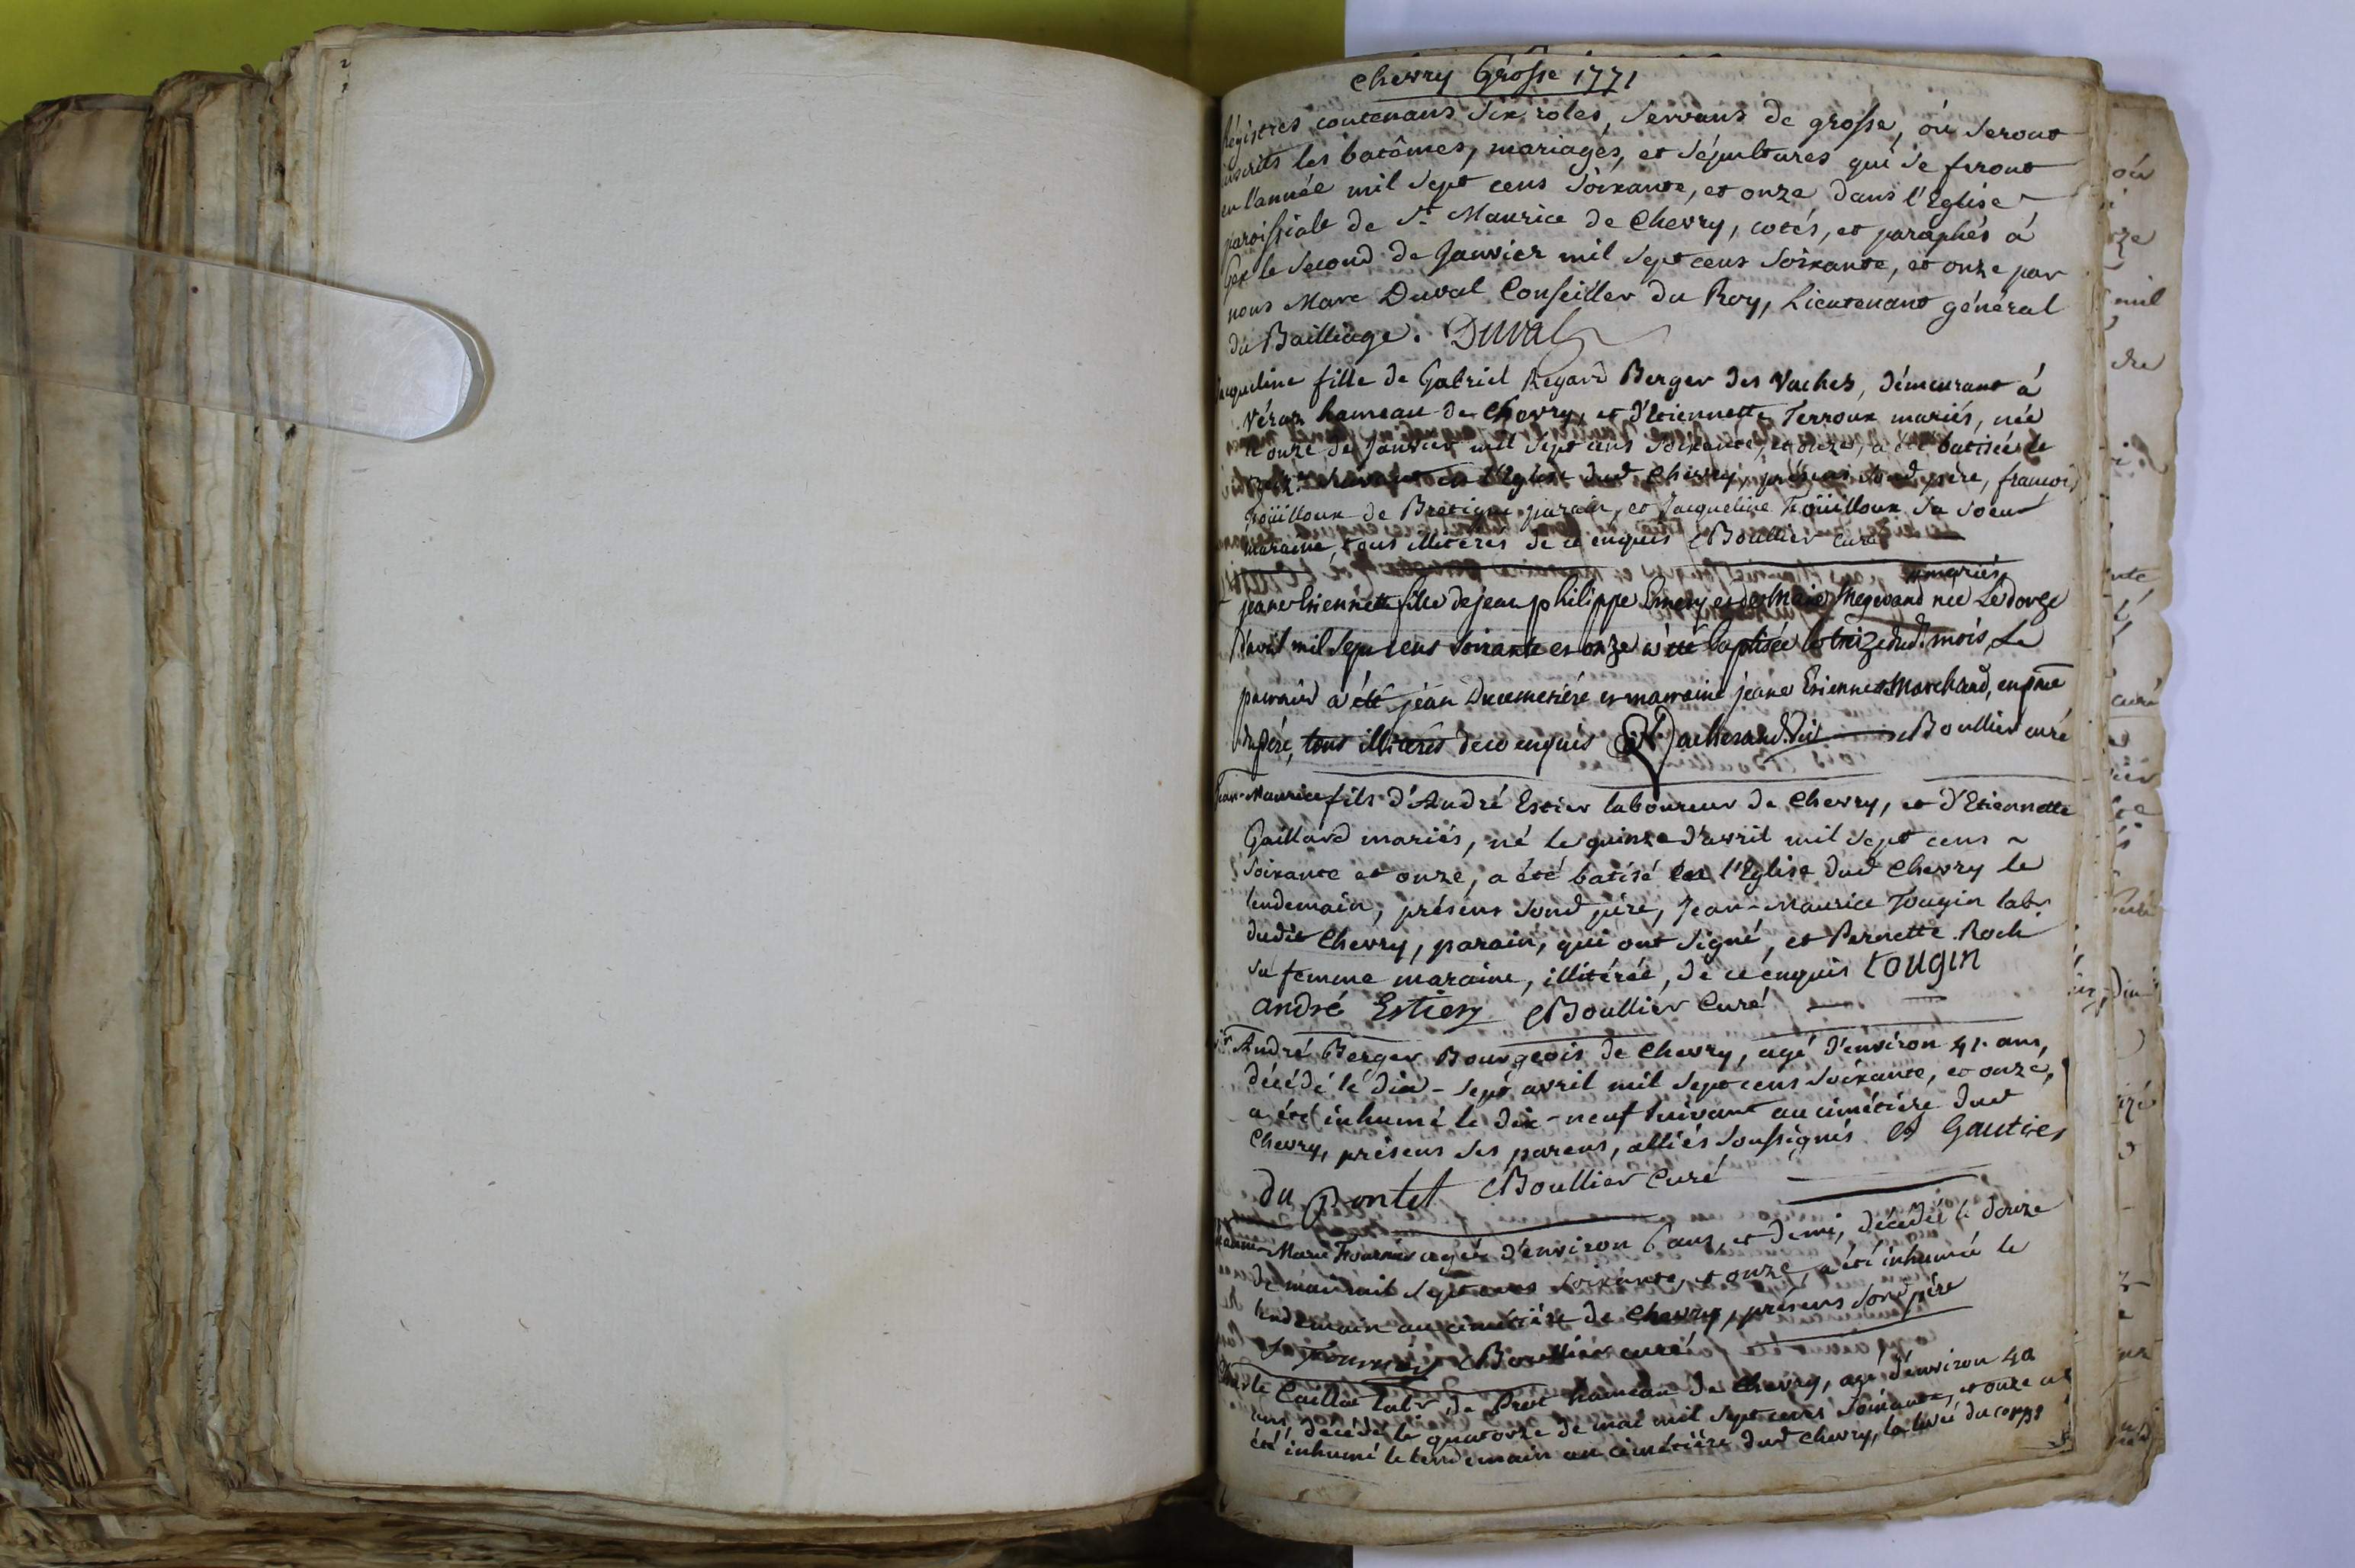 Chevry Grosse 1771
Régistres contenans six roles, servans de grosse, où seront
inscrits les batômes, mariages, et sépultures qui se feront
en l'année mil sept cens soixante, et onze dans l'Eglise
paroissiale de St Maurice de Chevry, cotés, et paraphés à
Gex le second de Janvier mil sept cens soixante, et onze par
nous Marc Duval Conseiller du Roy, Lieutenant général
du Bailliage. Duval
Jacqueline fille de Gabriel Regard Berger des Vaches, démeurant à
Véraz hameau de Chevry, et d'Etiennette Terroux mariés, née
le onze de Janvier mil sept cens soixante, et onze, a été batisée le
en l'Eglise dud Chevry, présens sond père, francois
Foüilloux de Bretigni parain, et Jacqueline Foüilloux sa soeur
maraine, tous illitérés de ce enquis Boullier Curé
mariés
jeane Etiennette fille de jean philippe Emery et de Marie Megevand née Le dorze
d'avril mil sept cens soixante et onze a été baptisée le treize dud. mois, Le
parrain a été jean Ducimetiére et marraine jeane Etiennette Marchand, en pnce
du père, tous illitérés de ce enquis Boullier curé
Jean-Maurice fils d'André Estier laboureur de Chevry, et d'Etiennette
Gaillard mariés, né le quinze d'avril mil sept cens
soixante et onze, a été batisé en l'Eglise dud Chevry le
lendemain, présens sond père, Jean-Maurice Tougin labr
dudit Chevry, parain, qui ont signé, et Pernette Roch
sa femme maraine, illitérée, de ce enquis tougin
andré Estier Boullier Curé
Sr André Berger Bourgeois de Chevry, agé d'environ 41 ans,
décédé le dix-sept avril mil sept cens soixante, et onze,
a été inhumé le dix-neuf suivant au cimétière dud
Chevry, présens ses parens, alliés soussignés Gautier
du Pontet Boullier Curé
Jeanne-Marie Fournier agée d'environ 6 ans, et demi, décédée le douze
de mai mil sept cens soixante, et onze, a été inhumée le
lendemain au cimétière de Chevry, présens sond père
Fournier Boullier curé
Caillat labr de Prost hameau de Chevry, agé d'environ 40
ans décédé le quatorze de mai mil sept cens soixante, et onze a
été inhumé le lendemain au cimétière dud Chevry, la levée du corps